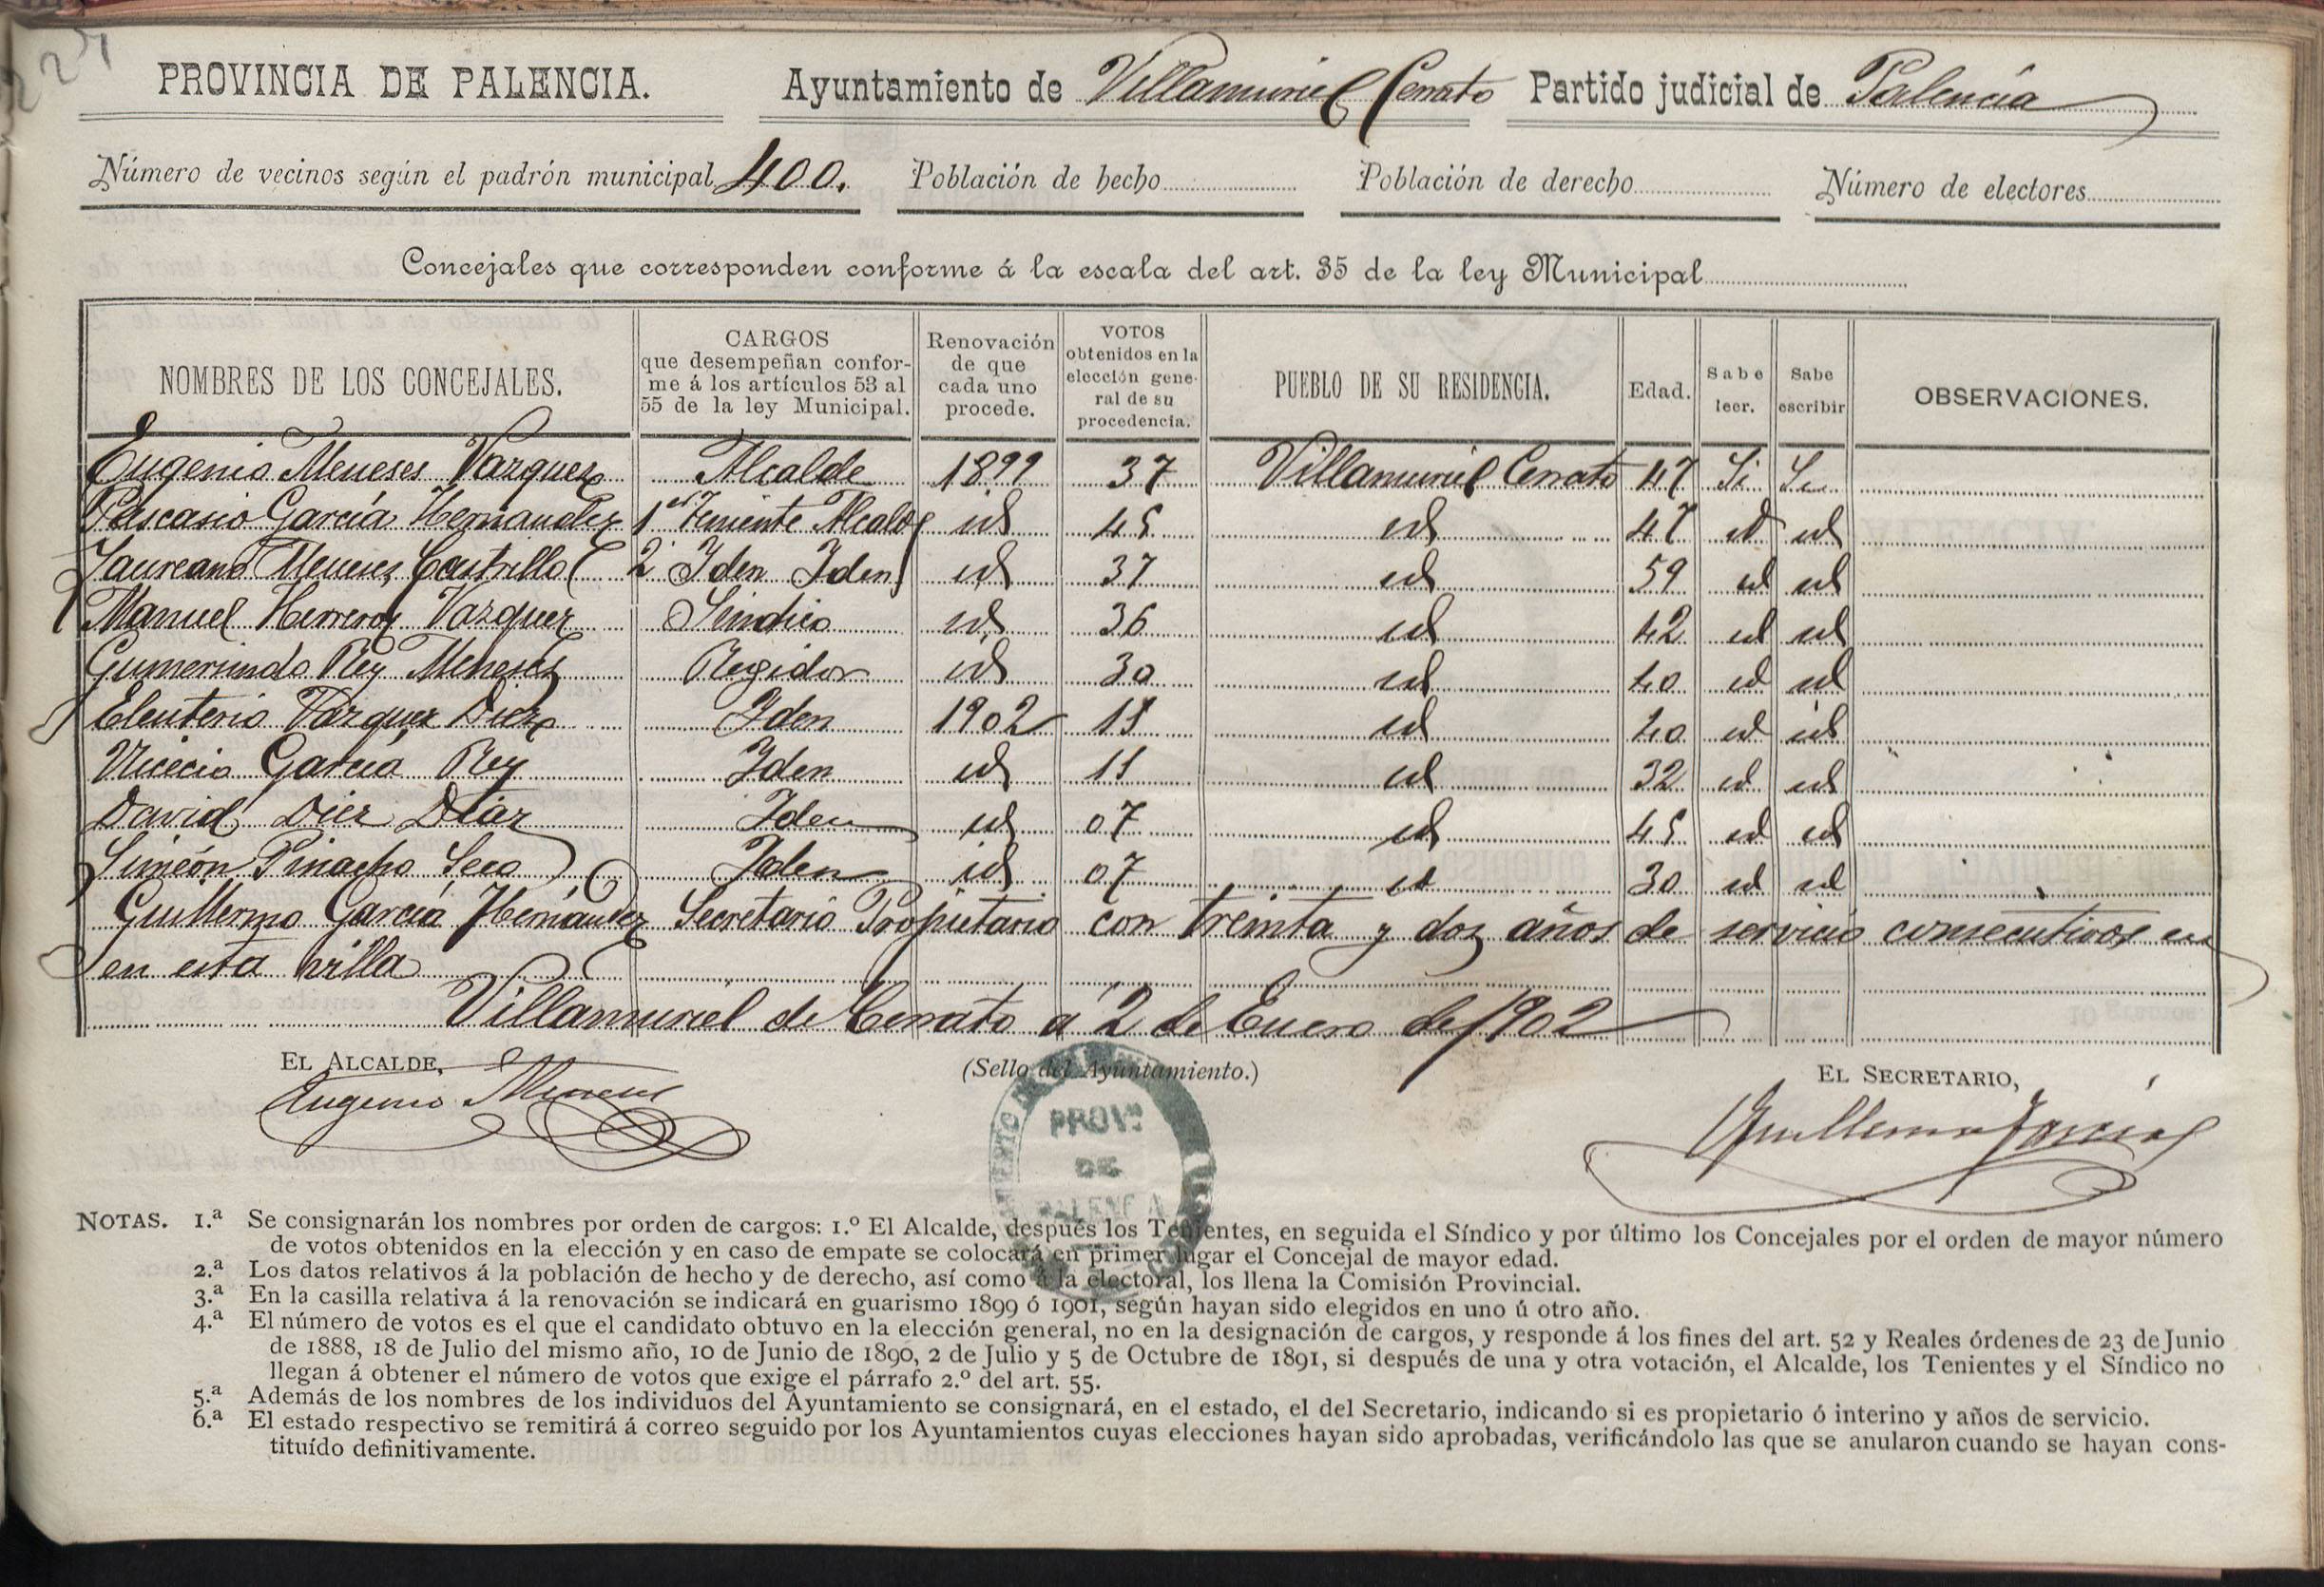 227
PROVINCIA DE PALENCIA. Ayuntamiento de Villamuriel Cerrato Partido judicial de Palencia
Número de vecinos según el padrón municipal 400. Población de hecho Población de derecho Número de electores
Concejales que corresponden conforme á la escala del art. 35 de la ley Municipal
NOMBRES DE LOS CONCEJALES. CARGOS que desempeñan conforme á los artículos 53 al 55 de la ley Municipal. Renovación de que cada uno procede. VOTOS obtenidos en la elección general de su procedencia. PUEBLO DE SU RESIDENCIA. Edad. Sabe leer. Sabe escribir OBSERVACIONES.
Eugenio Meneses Vazquez Alcalde 1899 37 Villamuriel Cerrato 47 Si Si
Pascasio García Hernandez 1er Teniente Alcalde id 45 id 47 id id
Laureano Meneses Castrillo 2º Iden Iden id 37 id 59 id id
Manuel Herreros Vazquez Sindico id 36 id 42 id id
Gumersindo Rey Meneses Regidor id 30 id 40 id id
Eleuterio Vazquez Diez Iden 1902 11 id 40 id id
Nicecio García Rey Iden id 11 id 32 id id
David Diez Diaz Iden id 07 id 45 id id
Simeón Pinacho Seco Iden id 07 id 30 id id
Guillermo García Hernández Secretario Propietario con treinta y dos años de servicio consecutivos en
en esta villa
Villamuriel de Cerrato a 2 de Enero de 1902
EL ALCALDE, (Sello del Ayuntamiento.) EL SECRETARIO,
Eugenio Meneses PROVª DE PALENCIA Guillermo García
NOTAS. 1.ª Se consignarán los nombres por orden de cargos: 1.º El Alcalde, después los Tenientes, en seguida el Síndico y por último los Concejales por el orden de mayor número
de votos obtenidos en la elección y en caso de empate se colocará en primer lugar el Concejal de mayor edad.
2.ª Los datos relativos á la población de hecho y de derecho, así como á la electoral, los llena la Comisión Provincial.
3.ª En la casilla relativa á la renovación se indicará en guarismo 1899 ó 1901, según hayan sido elegidos en uno ú otro año.
4.ª El número de votos es el que el candidato obtuvo en la elección general, no en la designación de cargos, y responde á los fines del art. 52 y Reales órdenes de 23 de Junio
de 1888, 18 de Julio del mismo año, 10 de Junio de 1890, 2 de Julio y 5 de Octubre de 1891, si después de una y otra votación, el Alcalde, los Tenientes y el Síndico no
llegan á obtener el número de votos que exige el párrafo 2.º del art. 55.
5.ª Además de los nombres de los individuos del Ayuntamiento se consignará, en el estado, el del Secretario, indicando si es propietario ó interino y años de servicio.
6.ª El estado respectivo se remitirá á correo seguido por los Ayuntamientos cuyas elecciones hayan sido aprobadas, verificándolo las que se anularon cuando se hayan cons-
tituído definitivamente.